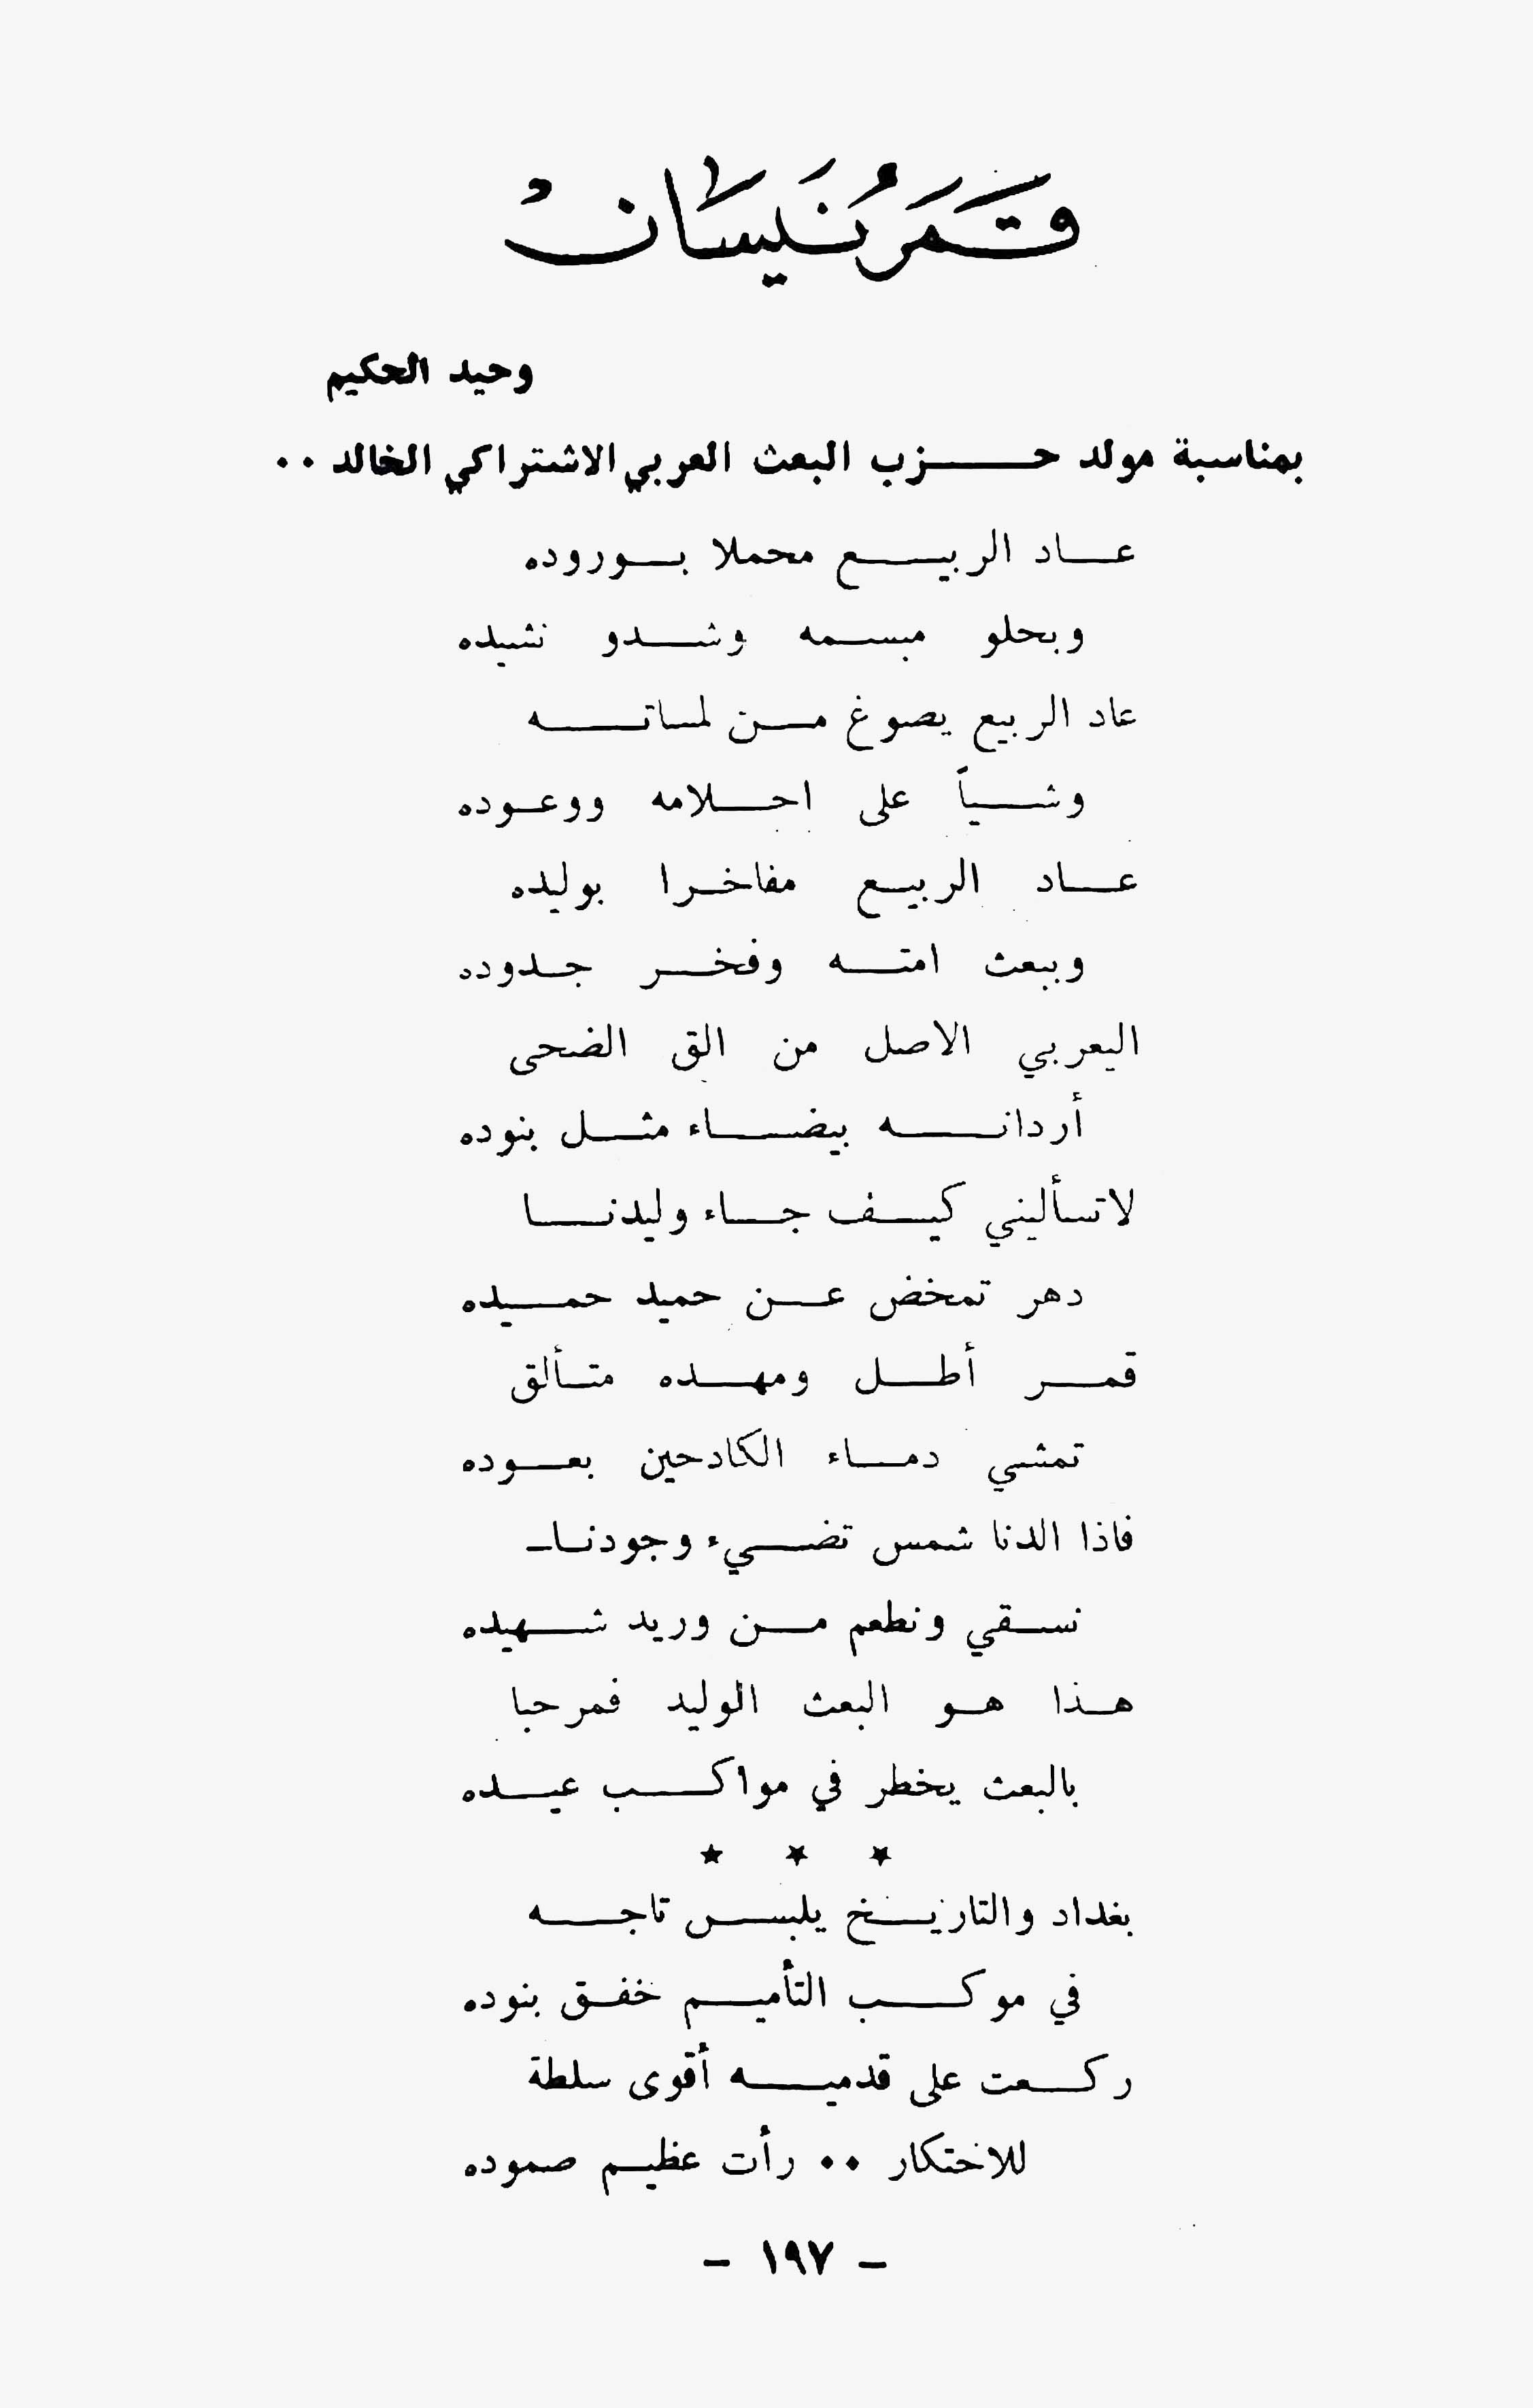 قَمَرُ نَيسَانْ
وحيد الحكيم
بمناسبة مولد حزب البعث العربي الاشتراكي الخالد ..
عاد الربيع محملا بوروده
وبحلو مبسمه وشدو نشيده
عاد الربيع يصوغ من لمساته
وشياً على احلامه ووعوده
عاد الربيع مفاخرا بوليده
وببعث امته وفخر جدوده
اليعربي الاصل من الق الضحى
أردانه بيضاء مثل بنوده
لاتسأليني كيف جاء وليدنا
دهر تمخض عن حميد حميده
قمر أطل ومهده متألق
تمشي دماء الكادحين بعوده
فاذا الدنا شمس تضيء وجودنا
نسقي ونطعم من وريد شهيده
هذا هو البعث الوليد فمرحبا
بالبعث يخطر في مواكب عيده
★ ★ ★
بغداد والتاريخ يلبس تاجه
في موكب التأميم خفق بنوده
ركعت على قدميه أقوى سلطة
للاختكار .. رأت عظيم صموده
- ١٩٧ -